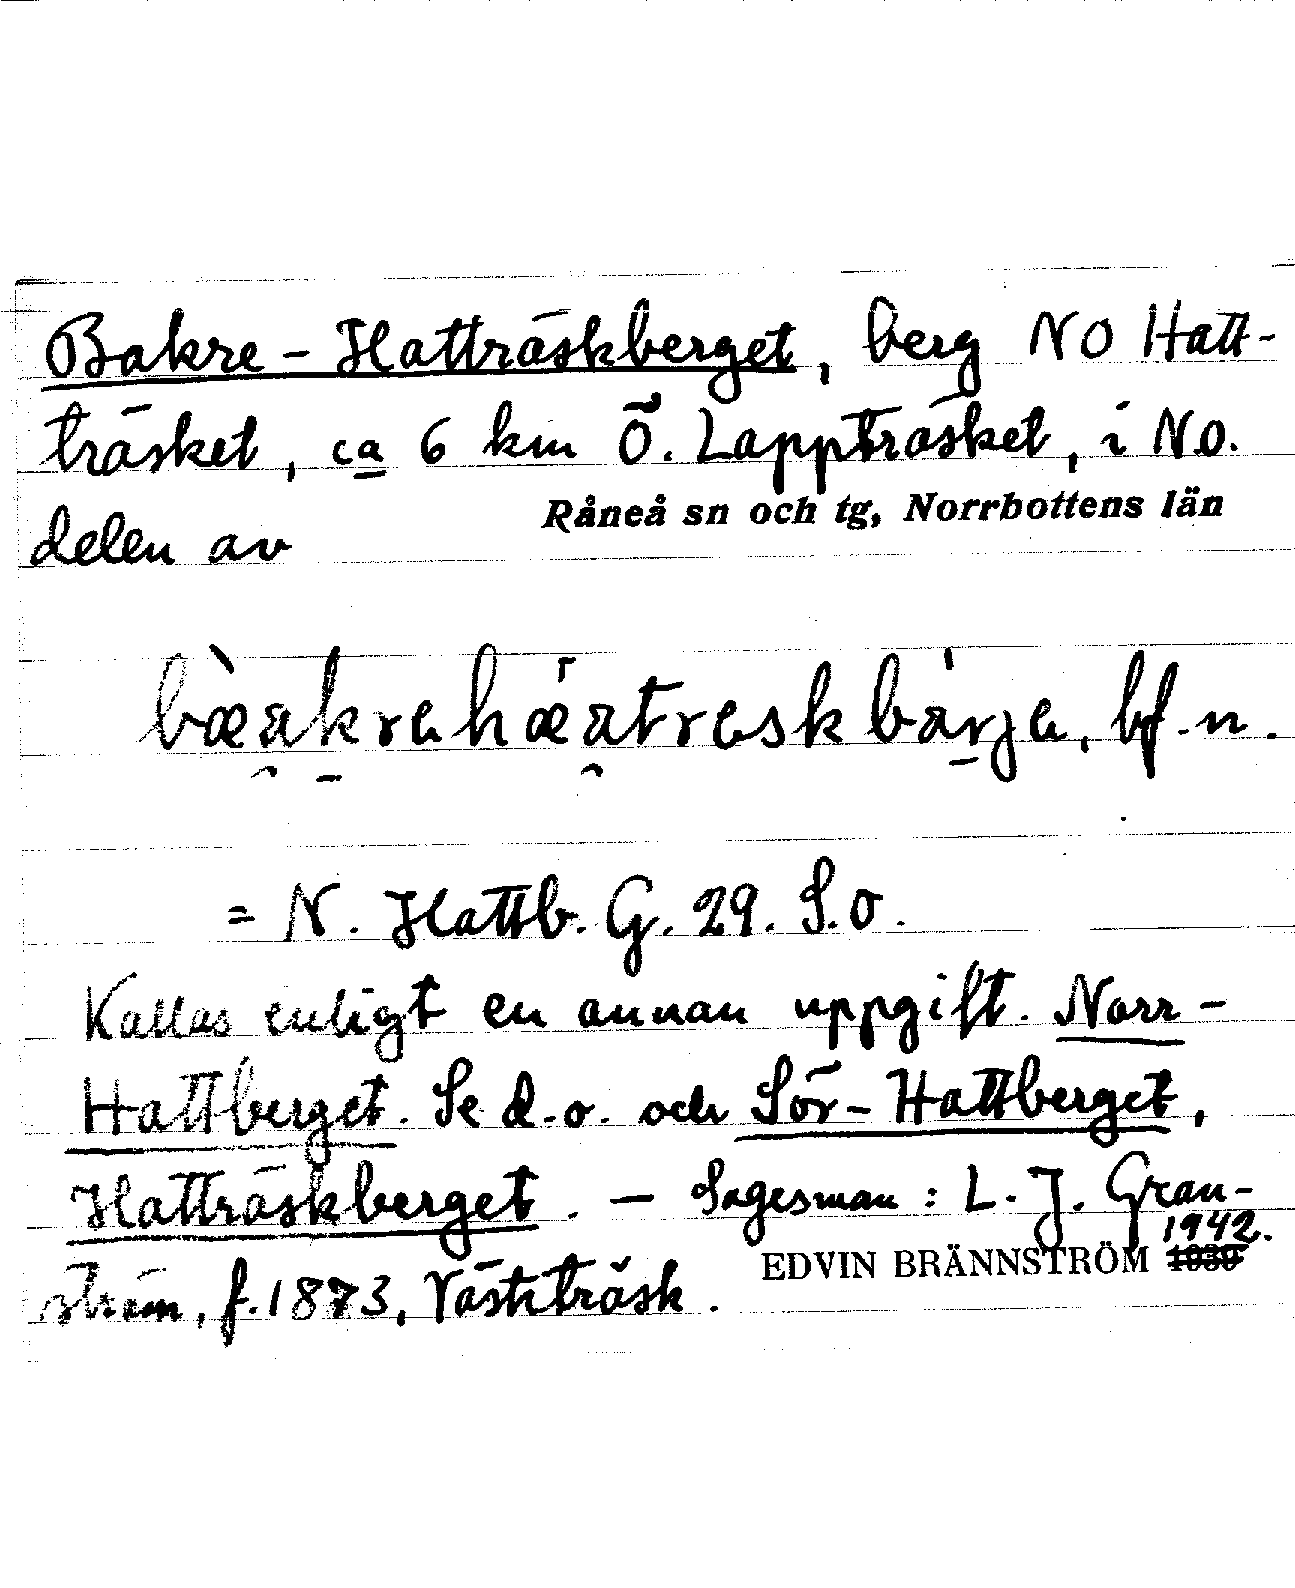 Bakre-Hatträskberget, berg NO Hatt-
träsket, ca 6 km Ö. Lappträsket, i NO.
Råneå sn och tg, Norrbottens län
delen av
bæ̀akrehǽatreskbárje, bf. n.
= N. Hattb. G. 29. S.O.
Kallas enligt en annan uppgift. Norr-
Hattberget. Se d.o. och Sör-Hattberget,
Hatträskberget. — Sagesman: L. J. Gran-
1942.
EDVIN BRÄNNSTRÖM 1930
ström, f. 1873, Västiträsk.